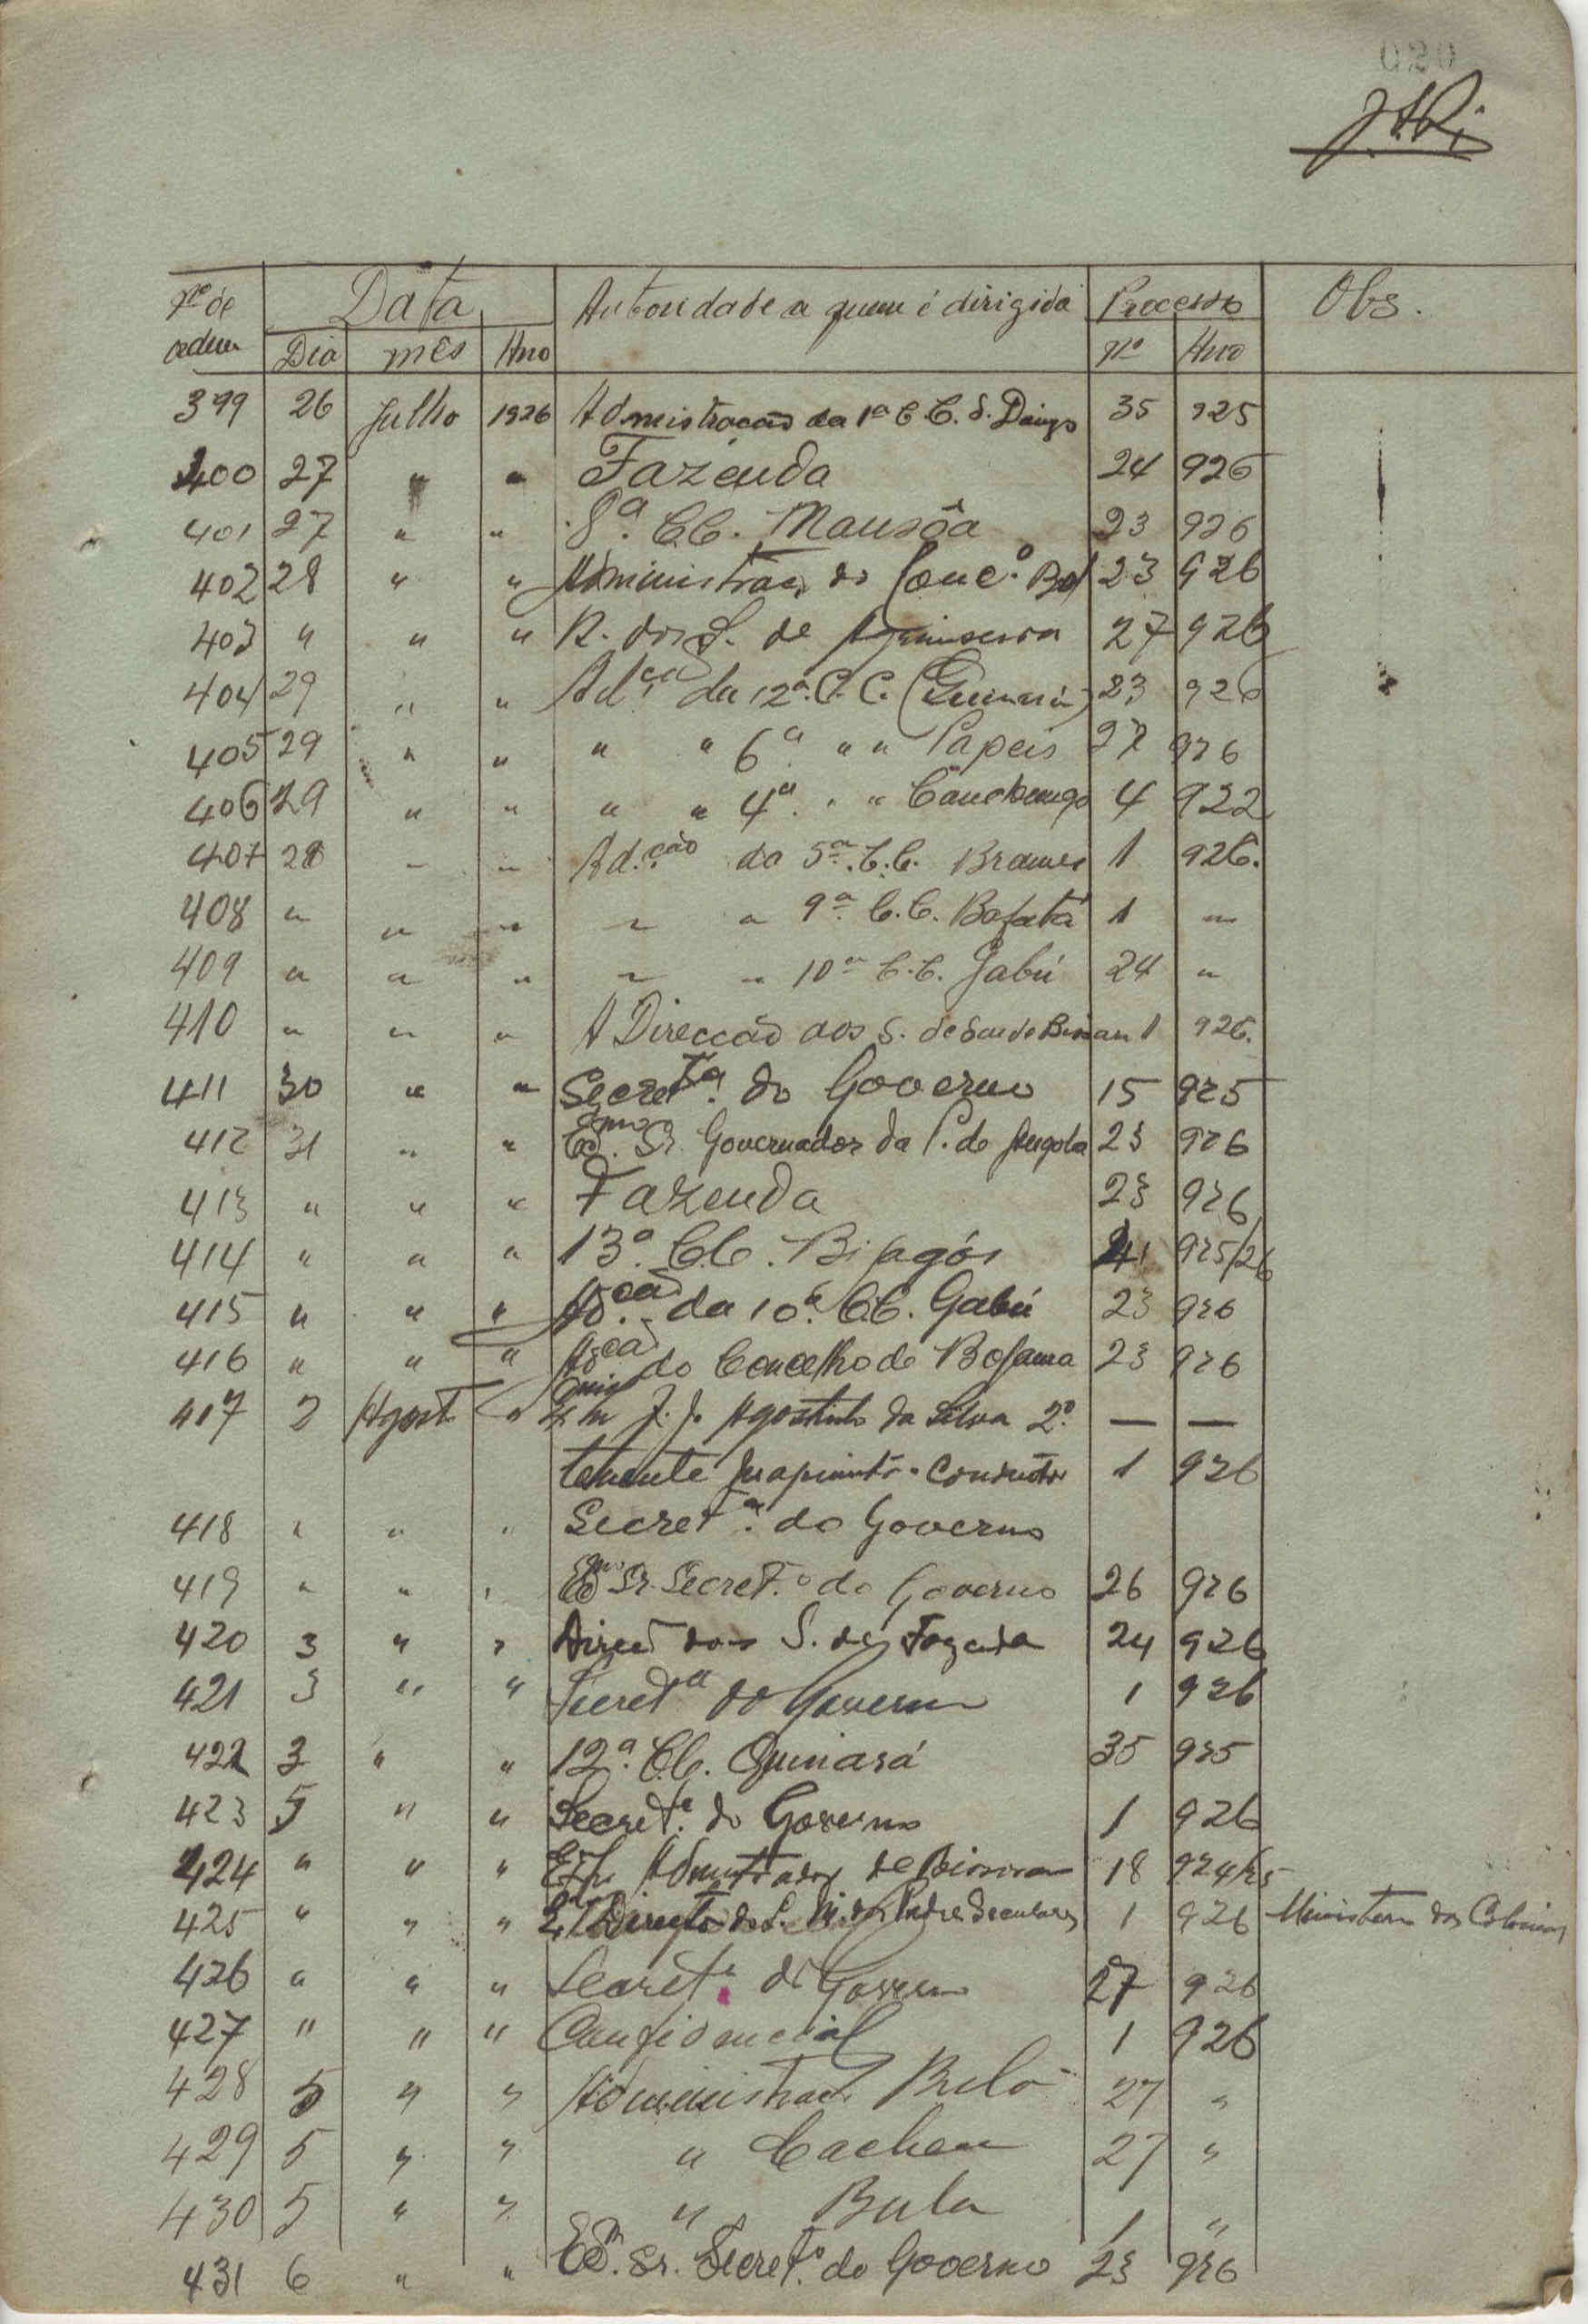 Nº de ordem Data Autoridade a quem é dirigida Processo Obs.
Dia mês Ano Nº Ano
399 26 Julho 1926 Admistração da 1ª C. C. S. Daingo 35 925
400 27 " " Fazenda 24 926
401 27 " " 8ª. C.C. Mansôa 23 926
402 28 " " Administraç. do Conc.º Bol 23 926
403 " " " R. dos S. de 27 926
404 29 " " Ad.ção da 12ª. C. C. (Quinará) 23 926
405 29 " " " " 6ª. " " Papeis 27 926
406 29 " " " " 4ª. " " Canchungo 4 922
407 28 " " Ad.ção da 5ª. C. C. Brames 1 926.
408 " " " " " 9ª C. C. Bafatá 1 "
409 " " " " " 10ª C. C. Gabú 24 "
410 " " " A Direcção dos S. de Saude Bissau 1 926.
411 30 " " Secret.ª do Governo 15 925
412 31 " " Exmo. Sr. Governador da P. de Angola 23 926
413 " " " Fazenda 23 926
414 " " " 13ª. C.C. Bijagós 41 925/26
415 " " " Ad.ção da 10ª. C.C. Gabú 23 926
416 " " " Ad.ção do Concelho de Bolama 23 926
417 2 Agost " J. J. Agostinho da Silva 2º. — —
tenente maquinista-condutor 1 926
418 " " " Secret.ª do Governo
419 " " " Exmo Sr. Secret.º do Governo 26 926
420 3 " " Direcç dos S. de Fazenda 24 926
421 3 " " Secretª do Governo 1 926
422 3 " " 12ª. C.C. Quinará 35 925
423 5 " " Secret.ª do Governo 1 926
424 " " " Administrador de 18 924/25
425 " " " Director do 1 926 Ministerio das Colonias
426 " " " Secret.ª do Governo 27 926
427 " " " Confidencial 1 926
428 5 " " Administraç. Buló 27 "
429 5 " " " Cacheu 27 "
430 5 " " " Bula 1 "
431 6 " " Exm. Sr. Secret.º do Governo 23 926